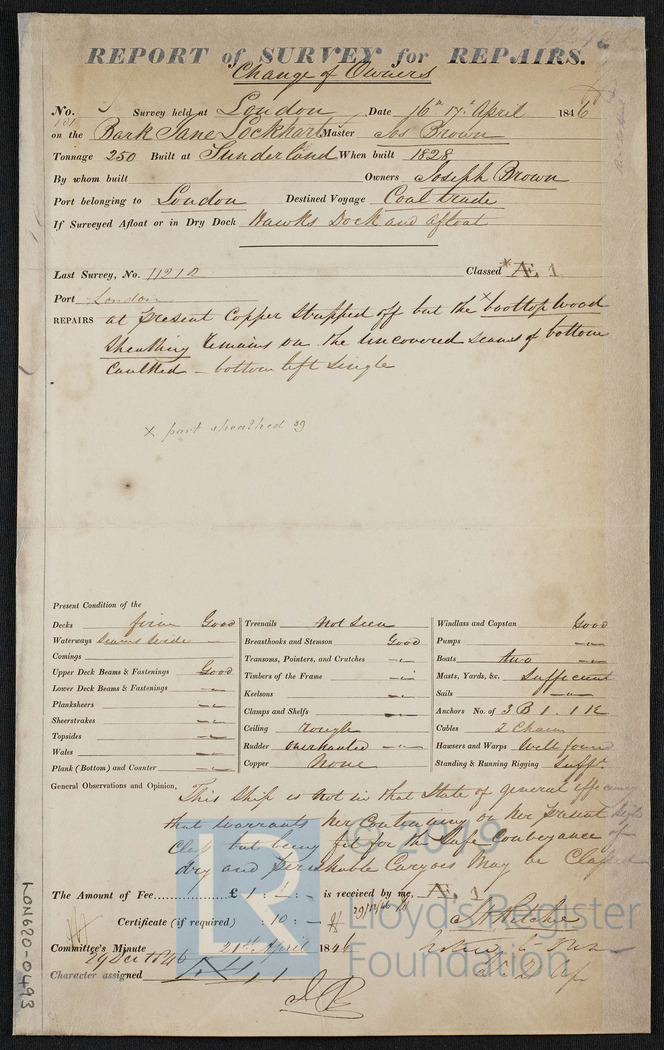 REPORT of SURVEY for REPAIRS.
Change of Owners
No. Survey held at London Date 16th 17th April 1846
on the Bark Jane Lockhart Master Jos Brown
Tonnage 250 Built at Sunderland When built 1828
By whom built Owners Joseph Brown
Port belonging to London Destined Voyage Coal trade
If Surveyed Afloat or in Dry Dock Hawks Dock and afloat
Last Survey, No. 11212 Classed *Æ 1
Port London
REPAIRS at present Copper Stripped off but the x boottop wood
Sheathing remains on the uncovered seams of bottom
Caulked - bottom left single
x part sheathed 39
Present Condition of the
Decks firm Good
Waterways seams wide
Comings
Upper Deck Beams & Fastenings Good
Lower Deck Beams & Fastenings
Planksheers
Sheerstrakes
Topsides
Wales
Plank (Bottom) and Counter
Treenails Not Seen
Breasthooks and Stemson Good
Transoms, Pointers, and Crutches
Timbers of the Frame
Keelsons
Clamps and Shelfs
Ceiling rough
Rudder Overhauled
Copper None
Windlass and Capstan Good
Pumps
Boats two
Masts, Yards, &c. Sufficient
Sails
Anchors No. of 3 B 1 . 1 K
Cables 2 Chain
Hawsers and Warps Well found
Standing & Running Rigging Sufft.
General Observations and Opinion, This Ship is not in that State of general efficiency
that warrants her Continuing on her present
Class but being fit for the Safe Conveyance of
dry and perishable Cargoes May be Classed
The Amount of Fee £ 1 : 1 : - is received by me, Æ 1
Certificate (if required) : 10 : -
29/12/46
Committee's Minute 21st April 1846
29 Dec 1846
Character assigned Æ 1
LON620-0493
© 2019
LR
Lloyd's Register
Foundation